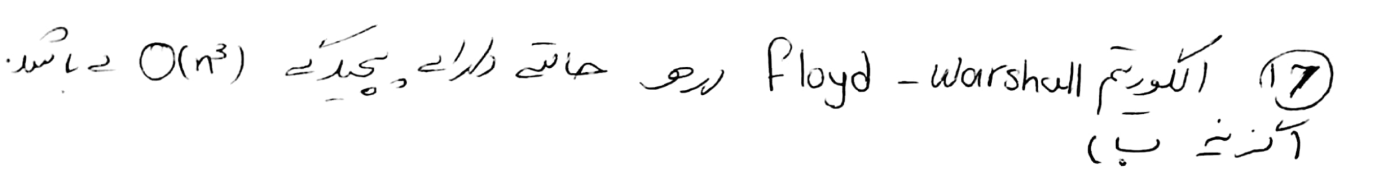 (17) الگوریتم Floyd - Warshall در هر حالتی دارای پیچیدگی O(n³) می باشد.
گزینه ب)